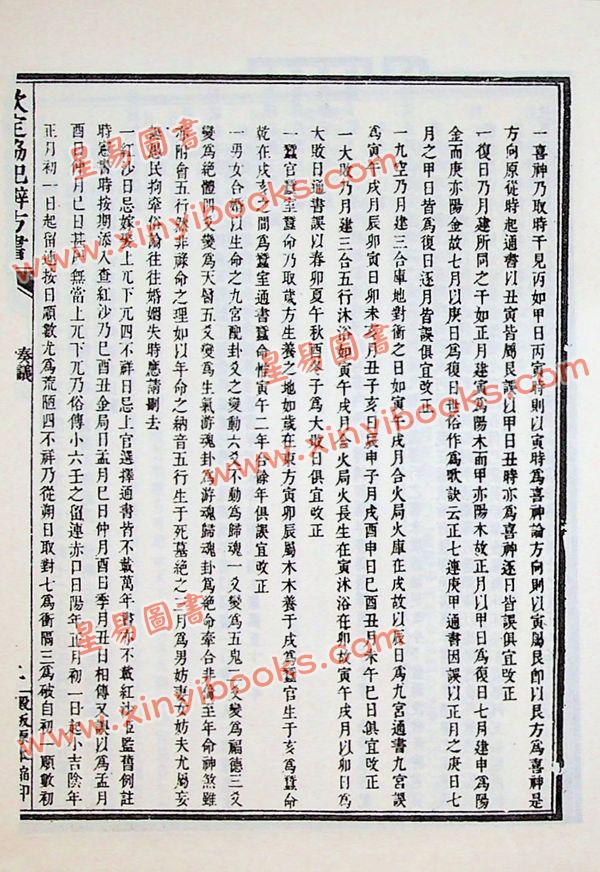 一喜神乃取時干見丙如甲日丙寅時則以寅時為喜神論方向則以寅屬艮卽以艮方為喜神是
方向原從時起通書以丑寅皆屬艮誤以甲日丑時亦為喜神逐日皆誤俱宜改正
一復日乃月建所同之干如正月建寅為陽木而甲亦陽木故正月以甲日為復日七月建申為陽
金而庚亦陽金故七月以庚日為復日世俗作為歌訣云正七連庚甲通書因誤以正月之庚日七
月之甲日皆為復日逐月皆誤俱宜改正
一九空乃月建三合庫地對衝之日如寅午戌月合火局火庫在戌故以辰日為九空通書九宮誤
為寅午戌月辰卯寅日卯未亥月丑子亥日辰申子月戌酉申日巳酉丑月未午巳日俱宜改正
一大敗乃月建三合五行沐浴如寅午戌月合火局火長生在寅沐浴在卯故寅午戌月以卯日為
大敗日通書誤以春卯夏午秋酉冬子為大敗日俱宜改正
一蠶官蠶室蠶命乃取歲方生養之地如歲在東方寅卯辰屬木木養于戌為蠶官生于亥為蠶命
乾在戌亥之間為蠶室通書蠶命惟寅午二年合餘年俱誤宜改正
一男女合婚以生命之九宮配卦爻之變動六爻不動為歸魂一爻變為五鬼二爻變為福德三爻
變為絶體四爻變為天醫五爻變為生氣游魂卦為游魂歸魂卦為絶命牽合非傳至年命神煞雖
亦附會五行然非祿命之理如以年命之納音五行生于死墓絶之三月為男妨妻女妨夫尤屬妄
愚民拘牽俗論往往婚媾失時應請删去
一紅沙日忌嫁娶上兀下兀四不祥日忌上官選擇通書皆不載萬年書亦不載紅沙監舊例註
時憲書時按期添入查紅沙乃巳酉丑金局日孟月巳日仲月酉日季月丑日相傳又誤以為孟月
酉日仲月巳日甚屬無當上兀下兀乃俗傳小六壬之留連赤口日陽年正月初一日起小吉陰年
正月初一日起留連按日順數尤為荒陋四不祥乃從朔日取對七為衝隔三為破自初一順數初
奏議
殿版
縮印
星易圖書
www.xinyibooks.com
星易圖書
www.xinyibooks.com
星易圖書
www.xinyibooks.com